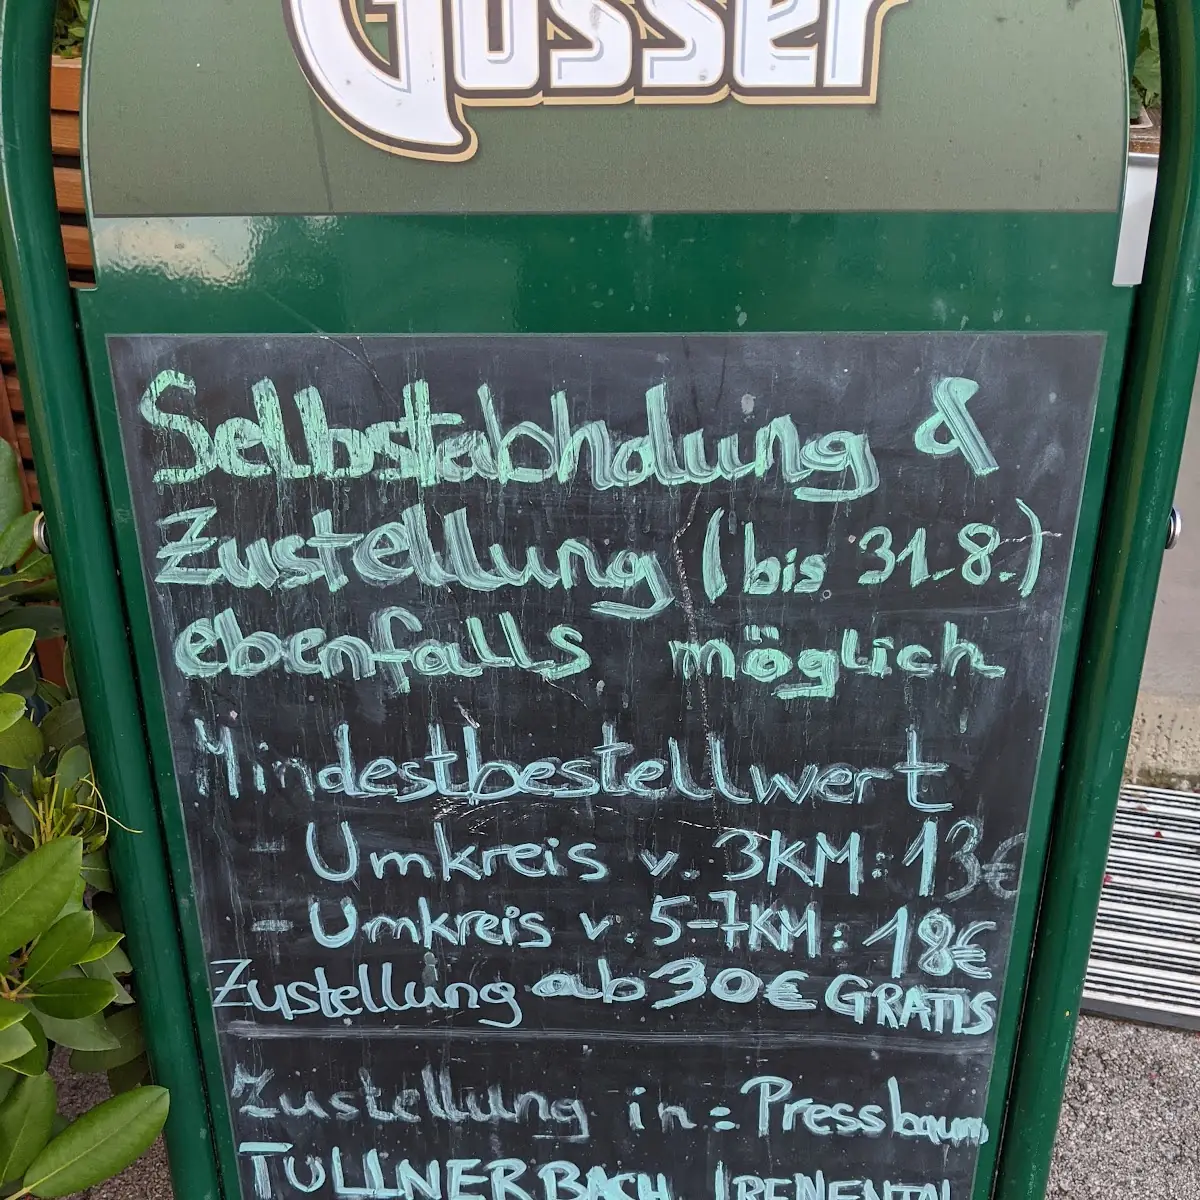 Gösser
Selbstabholung &
Zustellung (bis 31.8.)
ebenfalls möglich
Mindestbestellwert
- Umkreis v. 3KM: 13€
- Umkreis v. 5-7KM: 18€
Zustellung ab 30€ GRATIS
Zustellung in: Pressbaum
TULLNERBACH IRENENTAL